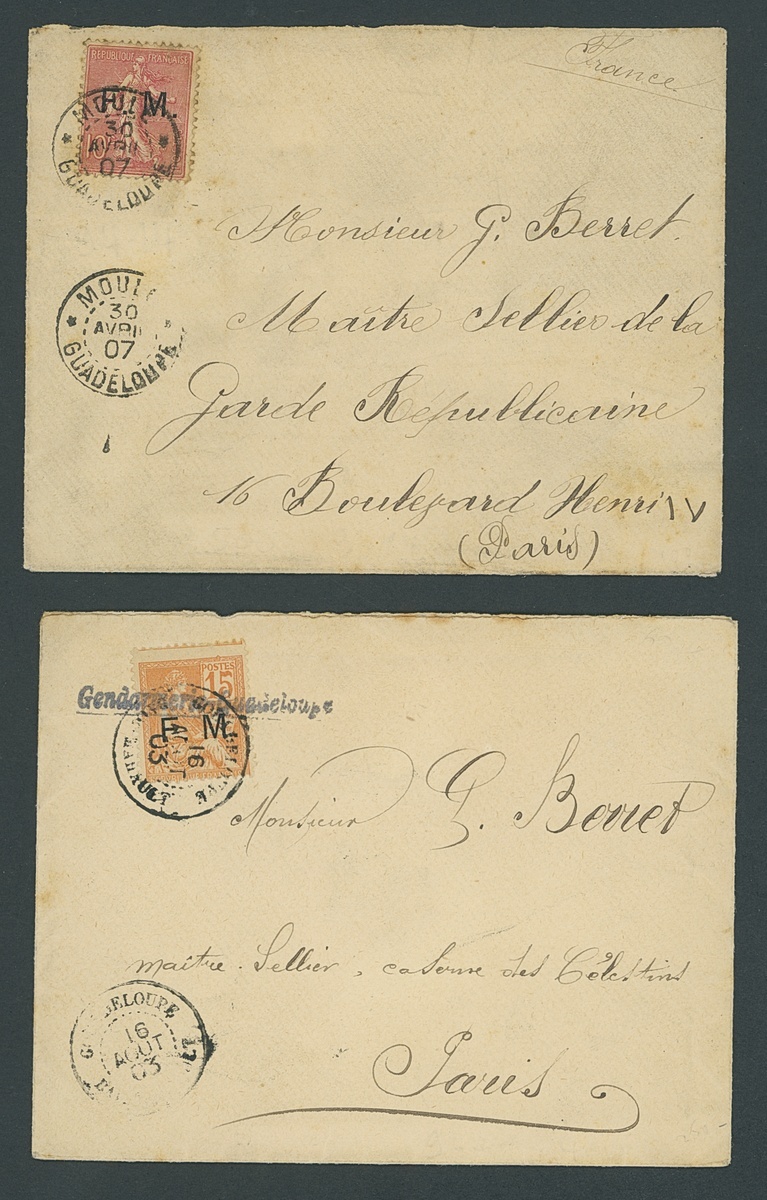 REPUBLIQUE FRANÇAISE
F. M.
10
MOULE
30
AVRIL
07
GUADELOUPE
France
Monsieur G. Berret.
Maître Sellier de la
Garde Républicaine
16 Boulevard Henri IV
(Paris)
MOULE
30
AVRIL
07
GUADELOUPE
POSTES
15
Gendarmerie Guadeloupe
F. M.
16
AOUT
03
Monsieur G. Berret
maître Sellier, caserne des Célestins
Paris
GUADELOUPE
16
AOUT
03